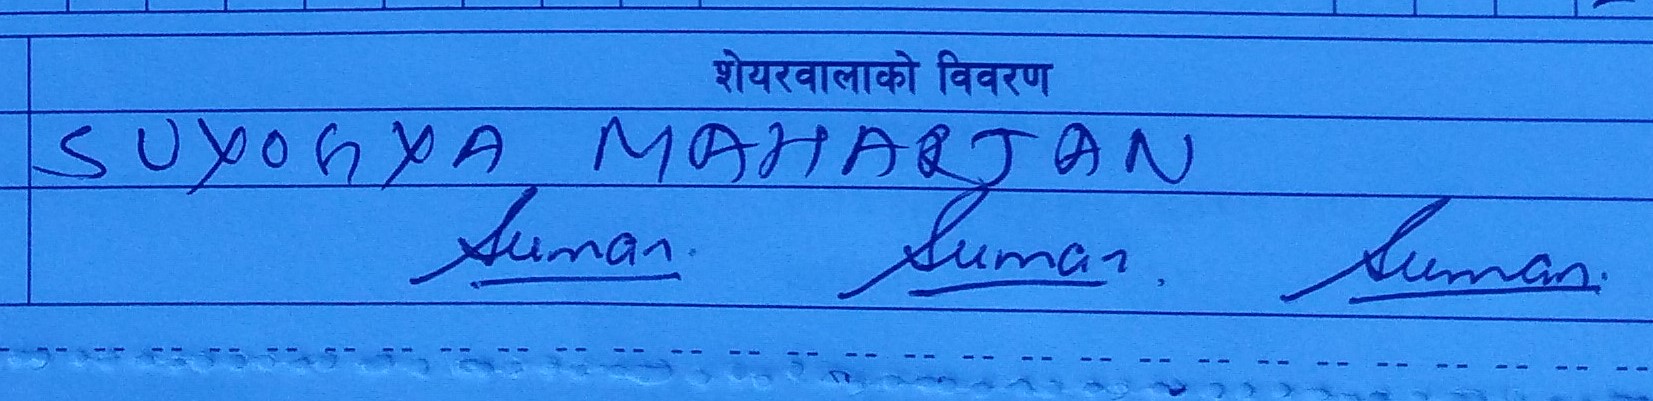 शेयरवालाको विवरण
SUYOGYA MAHARJAN
Suman. Suman. Suman.